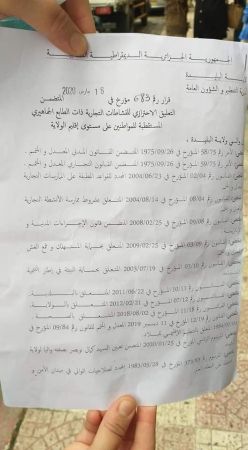 الجمهورية الجزائرية الديمقراطية
البليدة
التنظيم و الشؤون العامة
18 مارس 2020
قرار رقم 683 مؤرخ في المتضمن
التعليق الاحترازي للنشاطات التجارية ذات الطابع الجماهيري
المستقطبة للمواطنين على مستوى إقليم الولاية
والي ولاية البليدة
رقم 58/75 المؤرخ في 1975/09/26 المتضمن القانون المدني المعدل و المتمم
رقم 59/75 المؤرخ في 1975/09/26 المتضمن القانون التجاري المعدل و المتمم
رقم 02/04 المؤرخ في 2004/06/23 المحدد للقواعد المطبقة على الممارسات التجارية
المؤرخ في 2004/08/14 المتعلق بشروط ممارسة الأنشطة التجارية
المؤرخ في 2008/02/25 المتضمن قانون الإجراءات المدنية و
رقم 03/09 المؤرخ في 2009/02/25 المتعلق بحماية المستهلك و قمع الغش
رقم 03/10 المؤرخ في 2003/07/19 المتعلق بحماية البيئة في إطار التنمية
القانون رقم 10/11 المؤرخ في 2011/06/22 المتعلق بالبلدية
القانون رقم 07/12 المؤرخ في 2012/02/21 المتعلق بالولاية
رقم 11/18 المؤرخ في 2018/07/02 المتعلق بالصحة
المؤرخ في 11 ديسمبر 2019 المعدل و المتمم للقانون رقم 09/84 المؤرخ في
المؤرخ في 2020/01/25 المتضمن تعيين السيد كمال نويصر بصفته واليا لولاية
رقم 373/83 المؤرخ في 1983/05/28 المحدد لصلاحيات الوالي في ميدان الأمن و